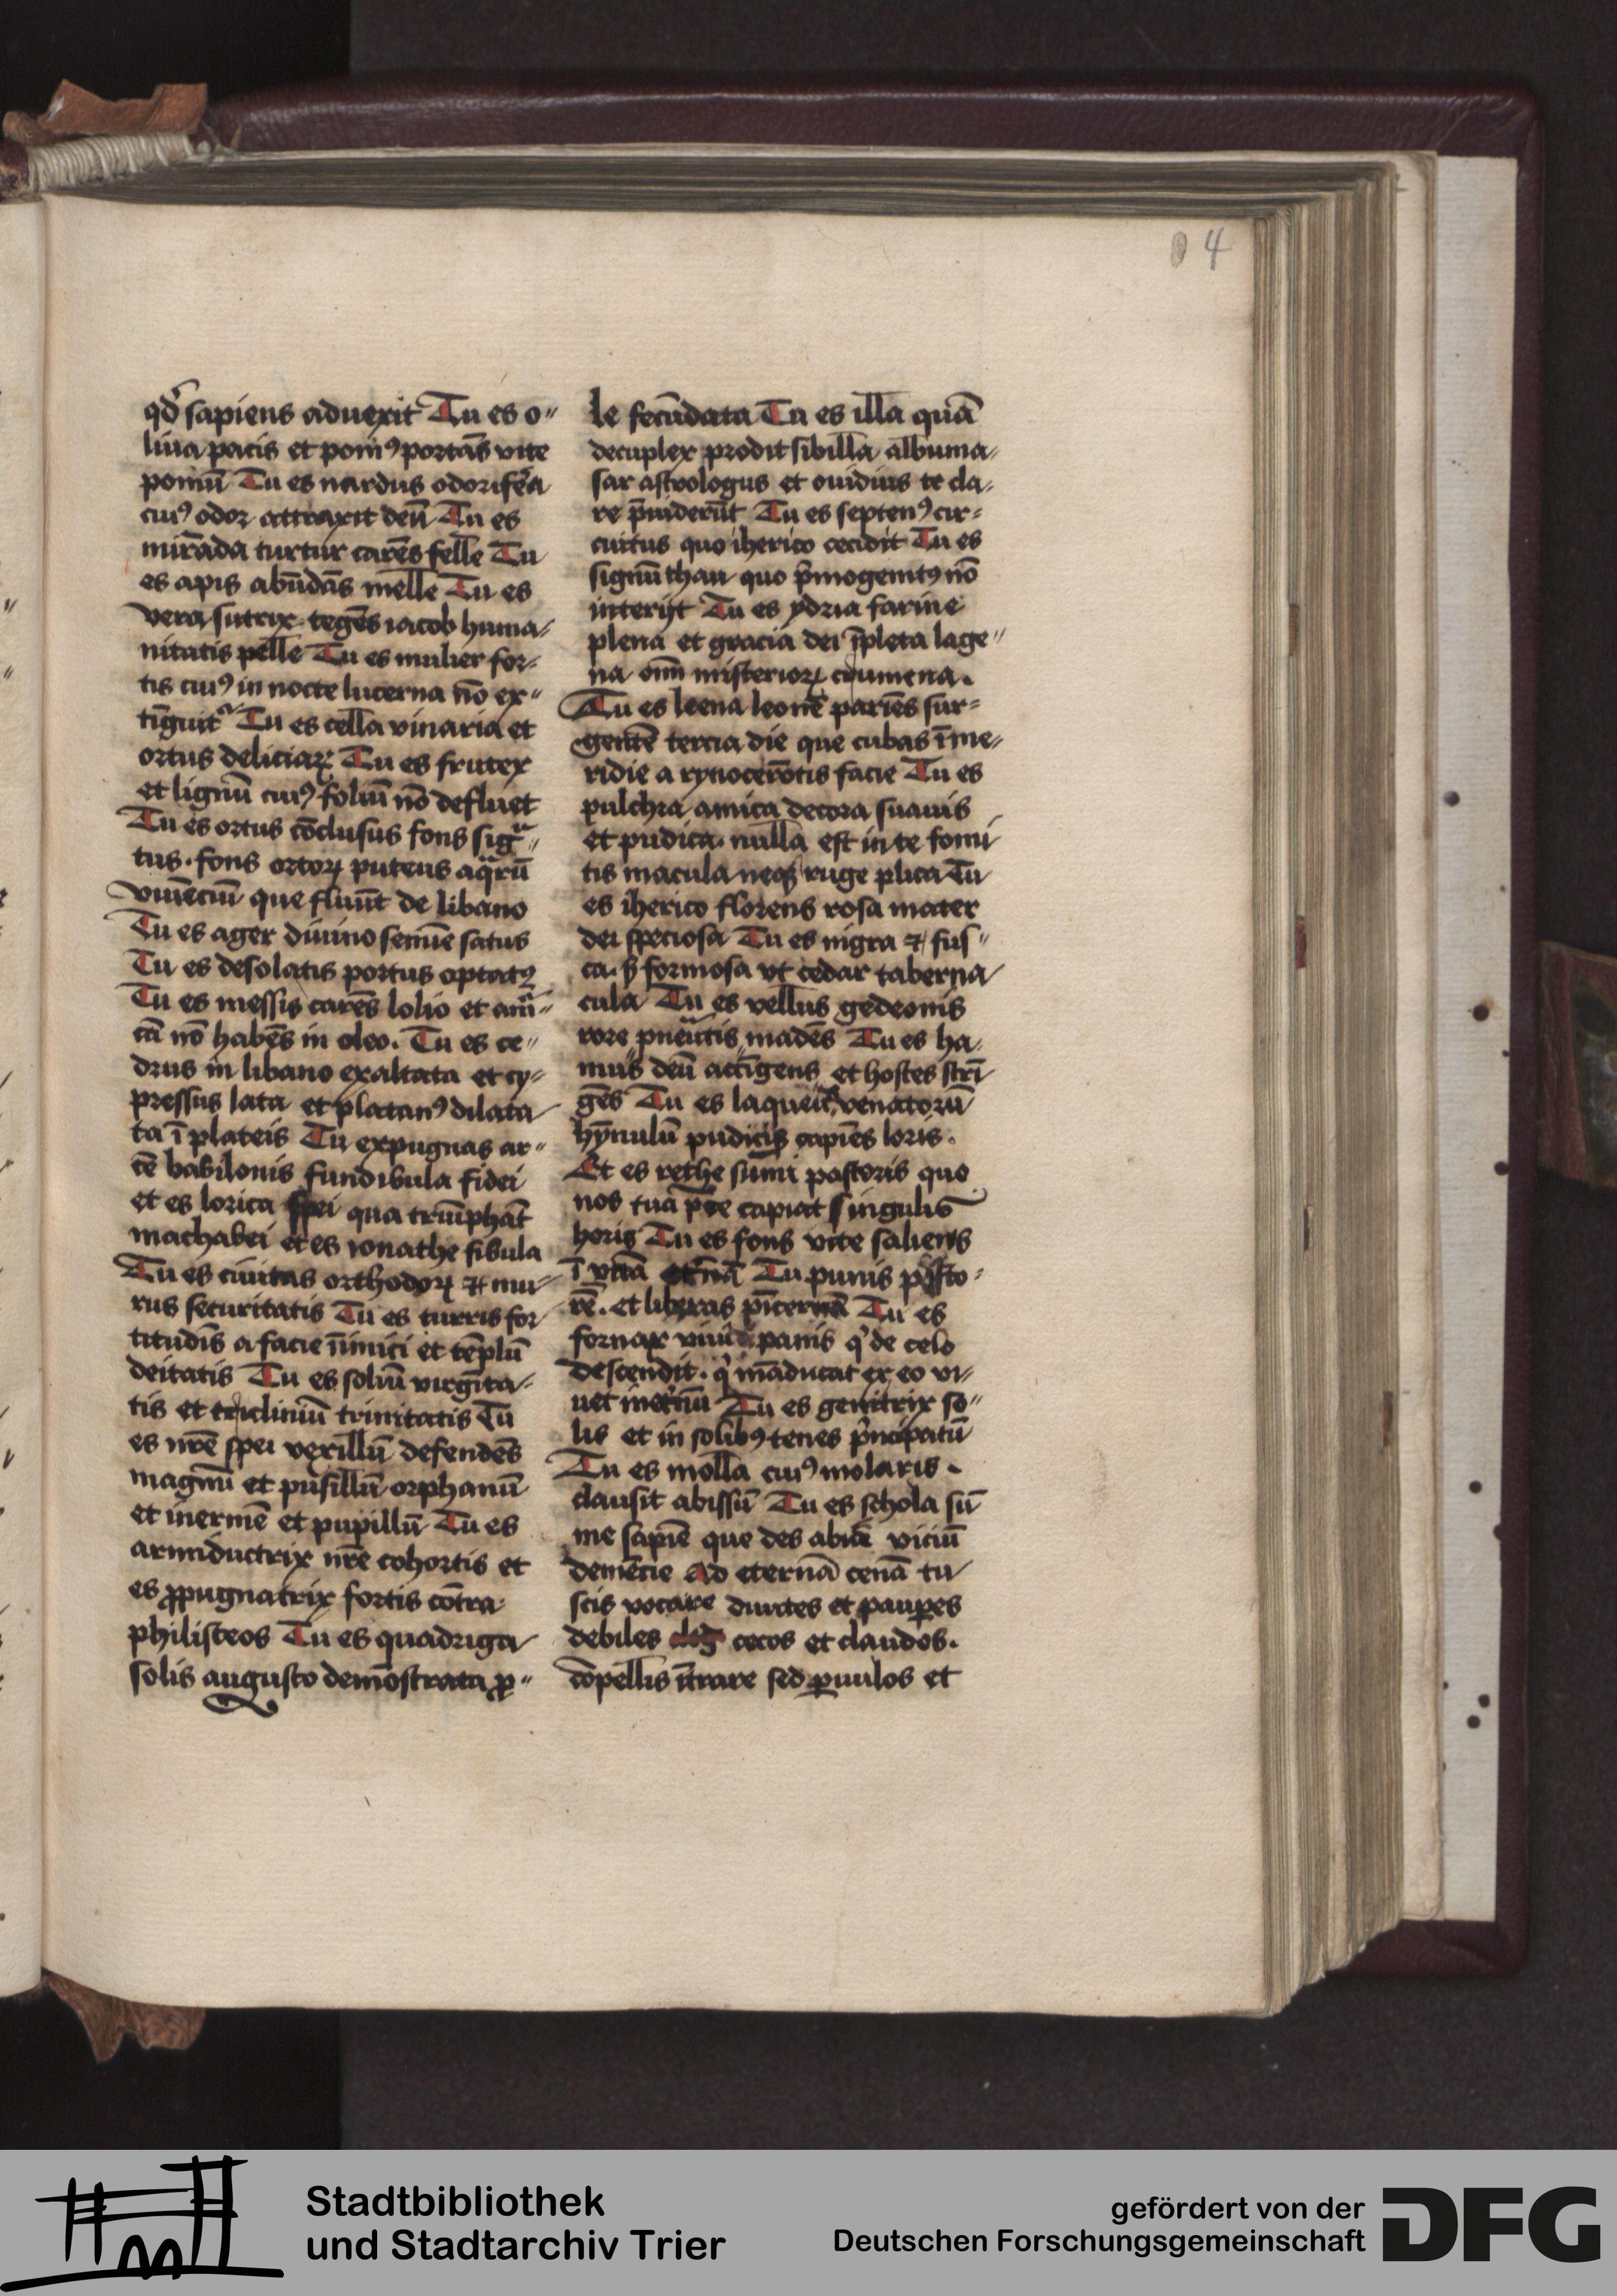 4
qd sapiens aduexit Tu es o"
liua pacis et pomꝰ portās vite
pomū Tu es nardus odorifera
cuiꝰ odor attraxit deū Tu es
mirāda turtur carēs felle Tu
es apis abūdās melle Tu es
vera sutrix tegēs iacob huma-
nitatis pelle Tu es mulier for-
tis cuiꝰ in nocte lucerna nō ex"
tīguit Tu es cella vinaria et
ortus deliciaꝝ Tu es frutex
et lignū cuiꝰ foliū nō defluet
Tu es ortus cōclusus fons sigᵃ"
tus. fons ortoꝝ puteus aqᵃrū
viuēciū que fluūt de libano
Tu es ager diuino semīe satus
Tu es desolatis portus optatꝰ
Tu es messis carēs lolio et amᵃ"
cā nō habēs in oleo. Tu es ce"
drus in libano exaltata et cy-
pressus lata et platanꝰ dilata
ta ī plateis Tu expugnas ar"
cē babilonis fundibula fidei
et es lorica spei qua triūphāt
machabei et es ionathe fibula
Tu es ciuitas orthodoꝝ ⁊ mu-
rus securitatis Tu es turris for
titudīs a facie īimici et tēplū
deitatis Tu es soliū virgīta-
tis et tricliniū trinitatis Tu
es nrē spei vexillū defendēs
magnū et pusillū orphanū
et inermē et pupillū Tu es
armiductrix nrē cohortis et
es ꝓpugnatrix fortis cōtra
philisteos Tu es quadriga
solis augusto demōstrata ꝓ"
le fecūdata Tu es illa quā
decuplex prodit sibilla albuma-
sar astrologus et ouidius te cla-
re p̄uiderūt Tu es septenꝰ cir-
cuitus quo iherico cecidit Tu es
signū thau quo p̄mogenitꝰ nō
interijt Tu es ydria farine
plena et gracia dei īpleta lage"
na oīm misterioꝝ crumena.
Tu es leena leonē pariēs sur-
gentē tercia die que cubas ī me-
ridie a rynocerōtis facie Tu es
pulchra amica decora suauis
et pudica. nulla est in te fomi
tis macula neqꝫ ruge plica Tu
es iherico florens rosa mater
dei speciosa Tu es nigra ⁊ fus"
ca. sꝫ formosa vt cedar taberna
cula Tu es vellus gedeonis
rore pneutis madēs Tu es ha-
mus deū attīgens et hostes strī
gēs Tu es laqueus venatorū
hȳnulū pudicis capiēs loris.
Et es rethe sūmi pastoris quo
nos tua p̄ce capiat singulis
horis Tu es fons vite saliens
ī vitā etnā Tu punis pisto-
rē. et liberas pīcernā Tu es
fornax viui panis qͥ de celo
descendit. qͥ māducat ex eo vi"
uet inetnū Tu es genitrix so"
lis et in solibꝰ tenes p̄ncipatū
Tu es molla cuiꝰ molaris.
clausit abissū Tu es schola sū
me sapiē que des abice viciū
demēcie Ad eternā cenā tu
scis vocare diuites et paupes
debiles cecos et claudos.
cōpellis ītrare sed paruulos et
Stadtbibliothek
und Stadtarchiv Trier
gefördert von der
Deutschen Forschungsgemeinschaft
DFG